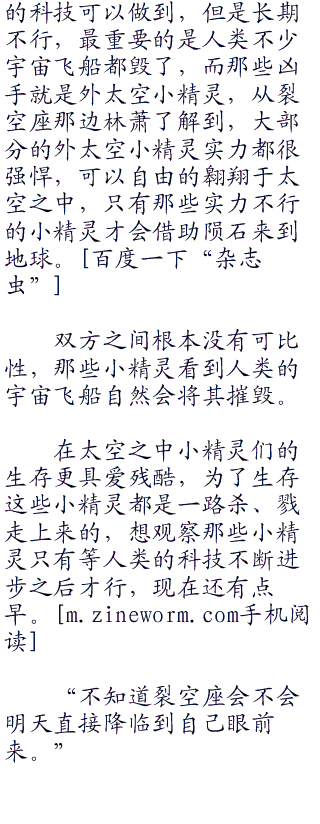 的科技可以做到，但是长期
不行，最重要的是人类不少
宇宙飞船都毁了，而那些凶
手就是外太空小精灵，从裂
空座那边林萧了解到，大部
分的外太空小精灵实力都很
强悍，可以自由的翱翔于太
空之中，只有那些实力不行
的小精灵才会借助陨石来到
地球。[百度一下“杂志
虫”]
双方之间根本没有可比
性，那些小精灵看到人类的
宇宙飞船自然会将其摧毁。
在太空之中小精灵们的
生存更具爱残酷，为了生存
这些小精灵都是一路杀、戮
走上来的，想观察那些小精
灵只有等人类的科技不断进
步之后才行，现在还有点
早。[m.zineworm.com手机阅
读]
“不知道裂空座会不会
明天直接降临到自己眼前
来。”